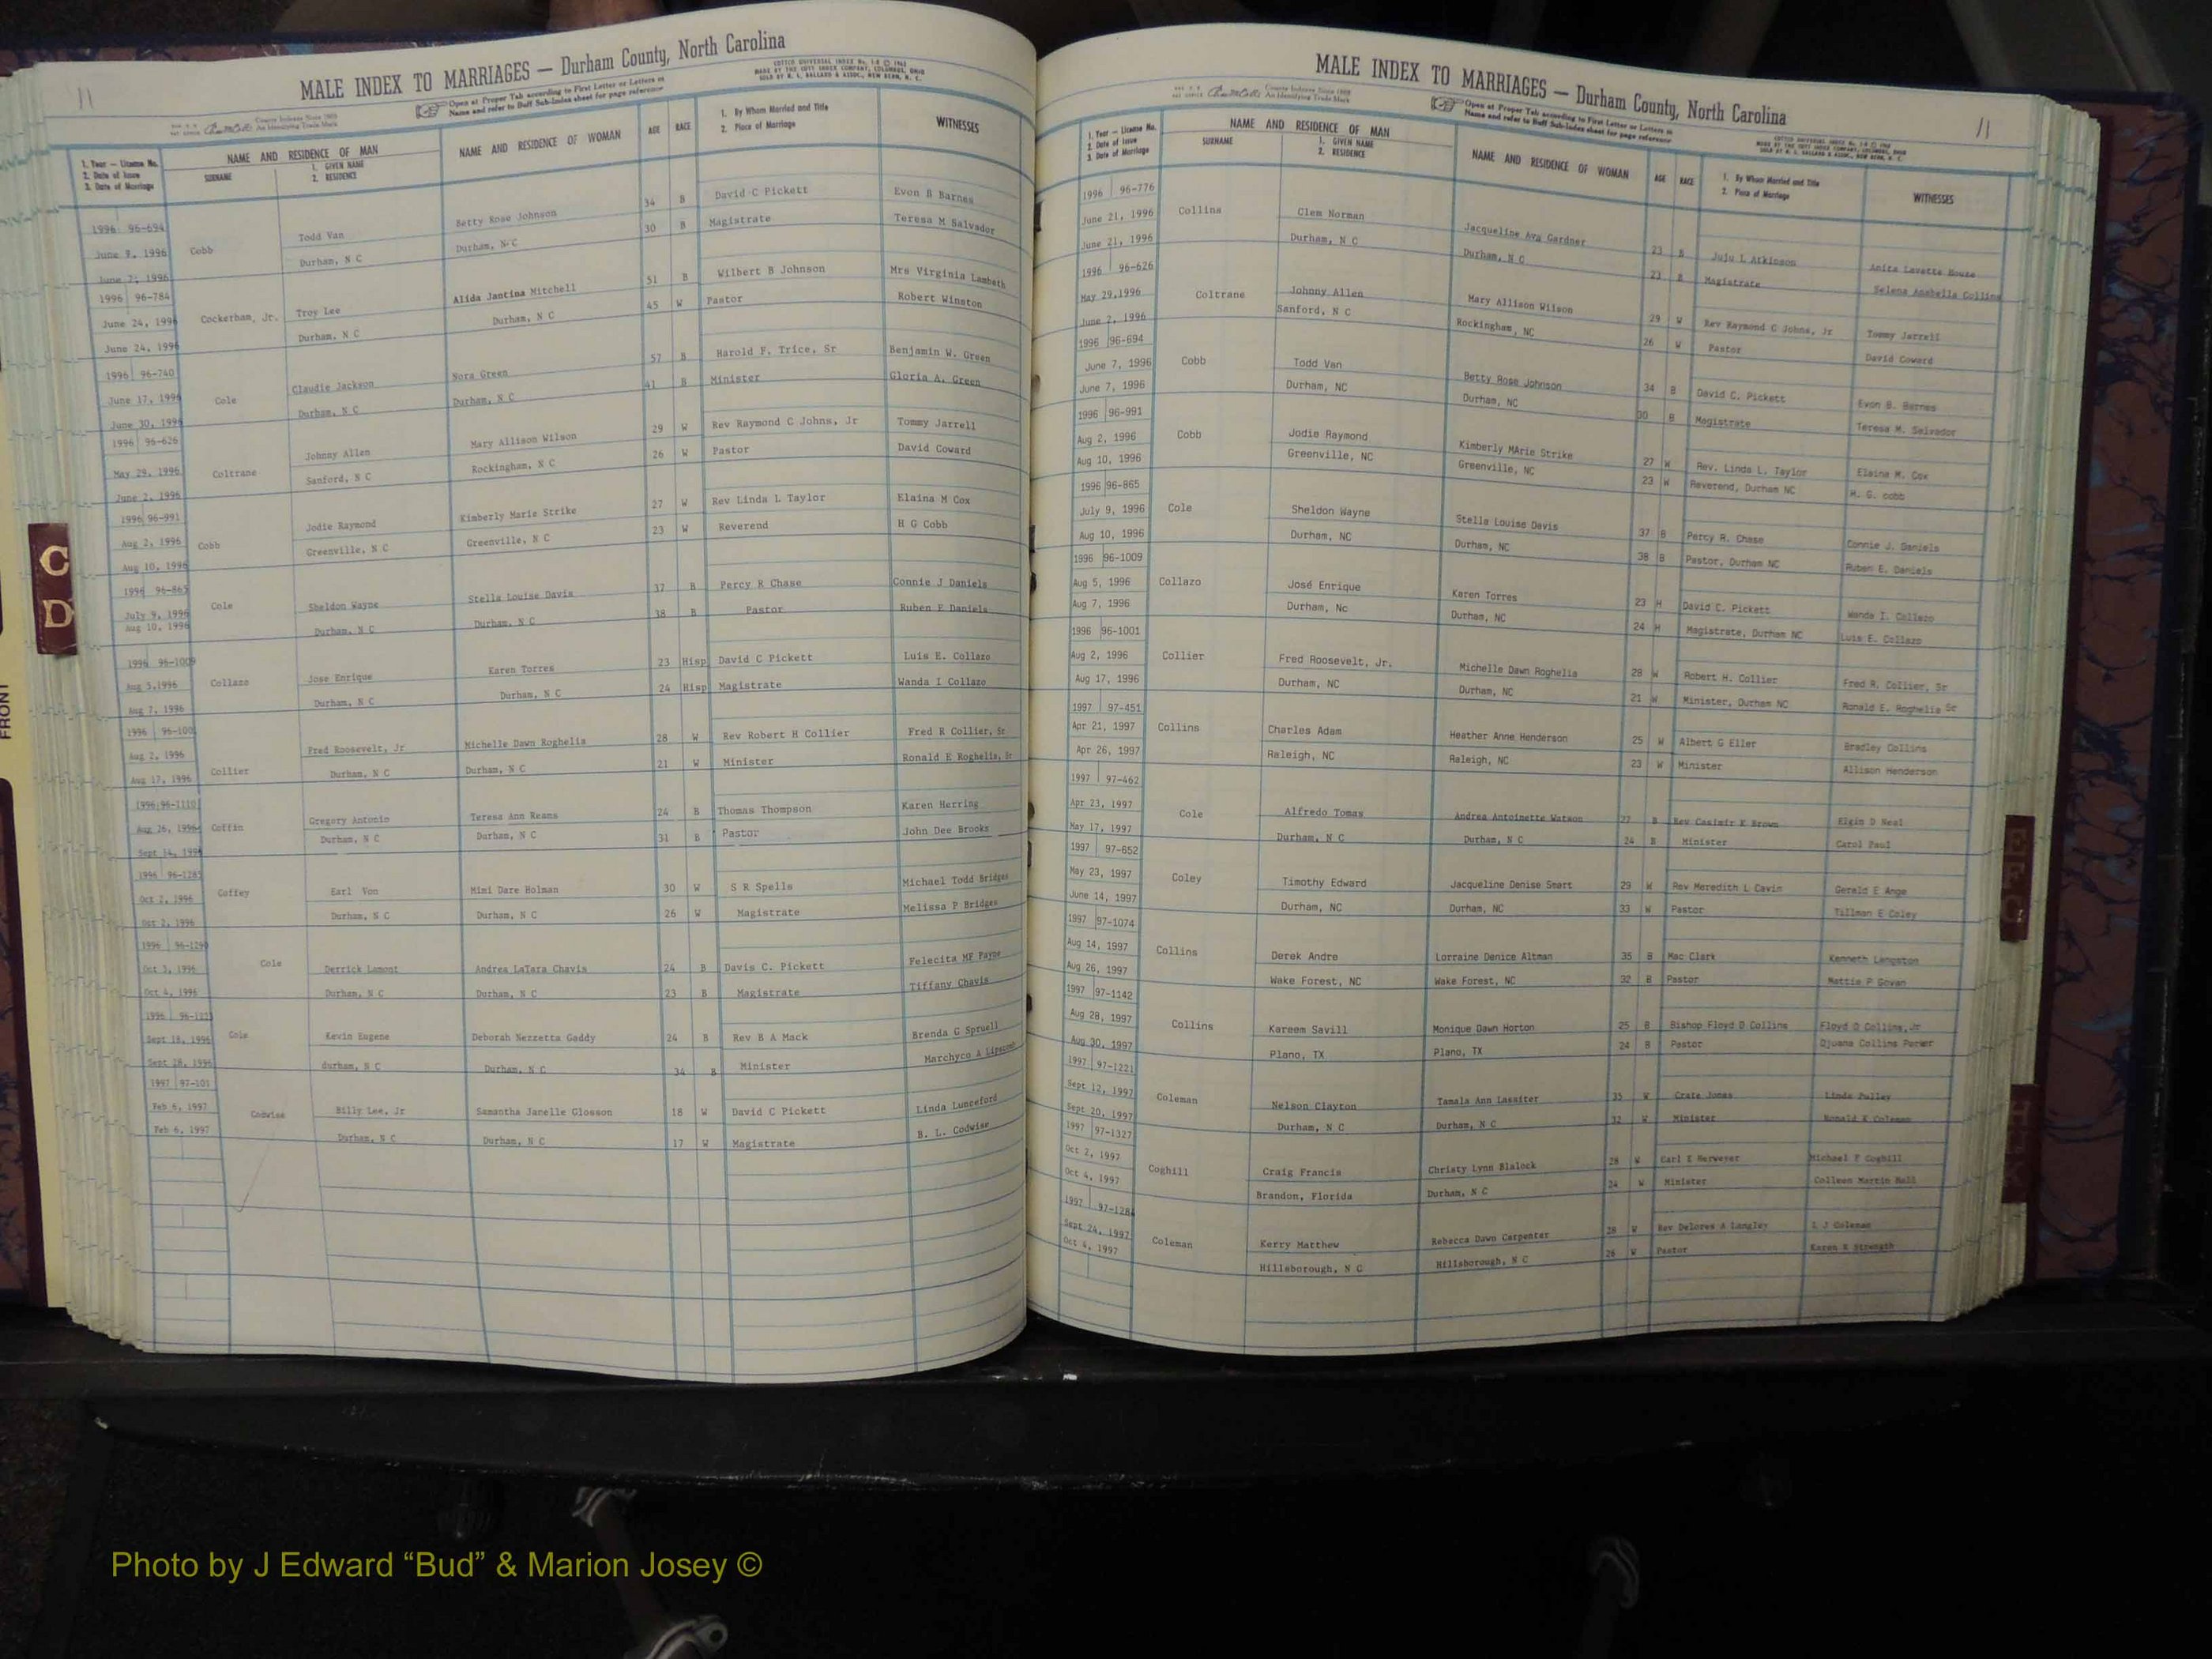 11
MALE INDEX TO MARRIAGES — Durham County, North Carolina
Open at Proper Tab according to First Letter or Letters in
Name and refer to Buff Sub-Index sheet for page reference
COTTCO UNIVERSAL INDEX No. 1-S © 1962
MADE BY THE COTT INDEX COMPANY, COLUMBUS, OHIO
SOLD BY H. L. BALLARD & ASSOC., NEW BERN, N. C.
County Indexes Since 1888
An Identifying Trade Mark
1. Year — License No.
2. Date of Issue
3. Date of Marriage
NAME AND RESIDENCE OF MAN
SURNAME
1. GIVEN NAME
2. RESIDENCE
NAME AND RESIDENCE OF WOMAN
AGE
RACE
1. By Whom Married and Title
2. Place of Marriage
WITNESSES
1996 96-694 Todd Van Betty Rose Johnson 34 B David C Pickett Evon B Barnes
June 9, 1996 Cobb Durham, N C Durham, N C 30 B Magistrate Teresa M Salvador
June 7, 1996
1996 96-784 Troy Lee Alida Jantina Mitchell 51 B Wilbert B Johnson Mrs Virginia Lambeth
June 24, 1996 Cockerham, Jr. Durham, N C Durham, N C 45 W Pastor Robert Winston
June 24, 1996
1996 96-740 Claudie Jackson Nora Green 57 B Harold F. Trice, Sr Benjamin W. Green
June 17, 1996 Cole Durham, N C Durham, N C 41 B Minister Gloria A. Green
June 30, 1996
1996 96-626 Johnny Allen Mary Allison Wilson 29 W Rev Raymond C Johns, Jr Tommy Jarrell
May 29, 1996 Coltrane Sanford, N C Rockingham, N C 26 W Pastor David Coward
June 2, 1996
1996 96-991 Jodie Raymond Kimberly Marie Strike 27 W Rev Linda L Taylor Elaina M Cox
Aug 2, 1996 Cobb Greenville, N C Greenville, N C 23 W Reverend H G Cobb
Aug 10, 1996
1996 96-865 Sheldon Wayne Stella Louise Davis 37 B Percy R Chase Connie J Daniels
July 9, 1996 Cole Durham, N C Durham, N C 38 B Pastor Ruben E Daniels
Aug 10, 1996
1996 96-1009 Jose Enrique Karen Torres 23 Hisp David C Pickett Luis E. Collazo
Aug 5,1996 Collazo Durham, N C Durham, N C 24 Hisp Magistrate Wanda I Collazo
Aug 7, 1996
1996 96-100 Fred Roosevelt, Jr Michelle Dawn Roghelia 28 W Rev Robert H Collier Fred R Collier, Sr
Aug 2, 1996 Collier Durham, N C Durham, N C 21 W Minister Ronald E Roghelia, Jr
Aug 17, 1996
1996 96-1110 Gregory Antonio Teresa Ann Reams 24 B Thomas Thompson Karen Herring
Aug 26, 1996 Coffin Durham, N C Durham, N C 31 B Pastor John Dee Brooks
Sept 14, 1996
1996 96-1285 Earl Von Mimi Dare Holman 30 W S R Spells Michael Todd Bridges
Oct 2, 1996 Coffey Durham, N C Durham, N C 26 W Magistrate Melissa P Bridges
Oct 2, 1996
1996 96-1290 Derrick Lamont Andrea LaTara Chavis 24 B Davis C. Pickett Felecita MF Payne
Oct 3, 1996 Cole Durham, N C Durham, N C 23 B Magistrate Tiffany Chavis
Oct 4, 1996
1996 Kevin Eugene Deborah Nezzetta Gaddy 24 B Rev B A Mack Brenda G Spruell
Sept 18, 1996 Cole durham, N C Durham, N C 34 B Minister Marchyco A Lipscomb
Sept 28, 1996
1997 97-101 Billy Lee, Jr Samantha Janelle Glosson 18 W David C Pickett Linda Lunceford
Feb 6, 1997 Codwise Durham, N C Durham, N C 17 W Magistrate B. L. Codwise
Feb 6, 1997
C
D
FRONT
MALE INDEX TO MARRIAGES — Durham County, North Carolina
11
Open at Proper Tab according to First Letter or Letters in
Name and refer to Buff Sub-Index sheet for page reference
County Indexes Since 1888
An Identifying Trade Mark
1. Year — License No.
2. Date of Issue
3. Date of Marriage
NAME AND RESIDENCE OF MAN
SURNAME
1. GIVEN NAME
2. RESIDENCE
NAME AND RESIDENCE OF WOMAN
AGE
RACE
1. By Whom Married and Title
2. Place of Marriage
WITNESSES
1996 96-776 Clem Norman Jacqueline Ava Gardner 23 B Juju L Atkinson Anita Lavette House
June 21, 1996 Collins Durham, N C Durham, N C 23 B Magistrate Selena Anabella Collins
June 21, 1996
1996 96-626 Johnny Allen Mary Allison Wilson 29 W Rev Raymond C Johns, Jr Tommy Jarrell
May 29,1996 Coltrane Sanford, N C Rockingham, NC 26 W Pastor David Coward
June 2, 1996
1996 96-694 Todd Van Betty Rose Johnson 34 B David C. Pickett Evon B. Barnes
June 7, 1996 Cobb Durham, NC Durham, NC 30 B Magistrate Teresa M. Salvador
June 7, 1996
1996 96-991 Jodie Raymond Kimberly MArie Strike 27 W Rev. Linda L. Taylor Elaina M. Cox
Aug 2, 1996 Cobb Greenville, NC Greenville, NC 23 W Reverend, Durham NC H. G. cobb
Aug 10, 1996
1996 96-865 Sheldon Wayne Stella Louise Davis 37 B Percy R. Chase Connie J. Daniels
July 9, 1996 Cole Durham, NC Durham, NC 38 B Pastor, Durham NC Ruben E. Daniels
Aug 10, 1996
1996 96-1009 José Enrique Karen Torres 23 H David C. Pickett Wanda I. Collazo
Aug 5, 1996 Collazo Durham, Nc Durham, NC 24 H Magistrate, Durham NC Luis E. Collazo
Aug 7, 1996
1996 96-1001 Fred Roosevelt, Jr. Michelle Dawn Roghelia 28 W Robert H. Collier Fred R. Collier, Sr
Aug 2, 1996 Collier Durham, NC Durham, NC 21 W Minister, Durham NC Ronald E. Roghelia Sr
Aug 17, 1996
1997 97-451 Charles Adam Heather Anne Henderson 25 W Albert G Eller Bradley Collins
Apr 21, 1997 Collins Raleigh, NC Raleigh, NC 23 W Minister Allison Henderson
Apr 26, 1997
1997 97-462 Alfredo Tomas Andrea Antoinette Watson 27 B Rev Casimir K Brown Elgin D Neal
Apr 23, 1997 Cole Durham, N C Durham, N C 24 B Minister Carol Paul
May 17, 1997
1997 97-652 Timothy Edward Jacqueline Denise Seart 29 W Rev Meredith L Cavin Gerald E Ange
May 23, 1997 Coley Durham, NC Durham, NC 33 W Pastor Tillman E Coley
June 14, 1997
1997 97-1074 Derek Andre Lorraine Denice Altman 35 B Mac Clark Kenneth Langston
Aug 14, 1997 Collins Wake Forest, NC Wake Forest, NC 32 B Pastor Mattie P Govan
Aug 26, 1997
1997 97-1142 Kareem Savill Monique Dawn Horton 25 B Bishop Floyd D Collins Floyd D Collins, Jr
Aug 28, 1997 Collins Plano, TX Plano, TX 24 B Pastor Djuana Collins Parker
Aug 30, 1997
1997 97-1221 Nelson Clayton Tamala Ann Lassiter 35 W Crate Jones Linda Pulley
Sept 12, 1997 Coleman Durham, N C Durham, N C 32 W Minister Ronald K Coleman
Sept 20, 1997
1997 97-1327 Craig Francis Christy Lynn Blalock 28 W Carl E Herweyer Michael F Coghill
Oct 2, 1997 Coghill Brandon, Florida Durham, N C 24 W Minister Colleen Martin Hall
Oct 4, 1997
1997 97-1284 Kerry Matthew Rebecca Dawn Carpenter 28 W Rev Delores A Langley L J Coleman
Sept 24, 1997 Coleman Hillsborough, N C Hillsborough, N C 26 W Pastor Karen K Strength
Oct 4, 1997
Photo by J Edward “Bud” & Marion Josey ©